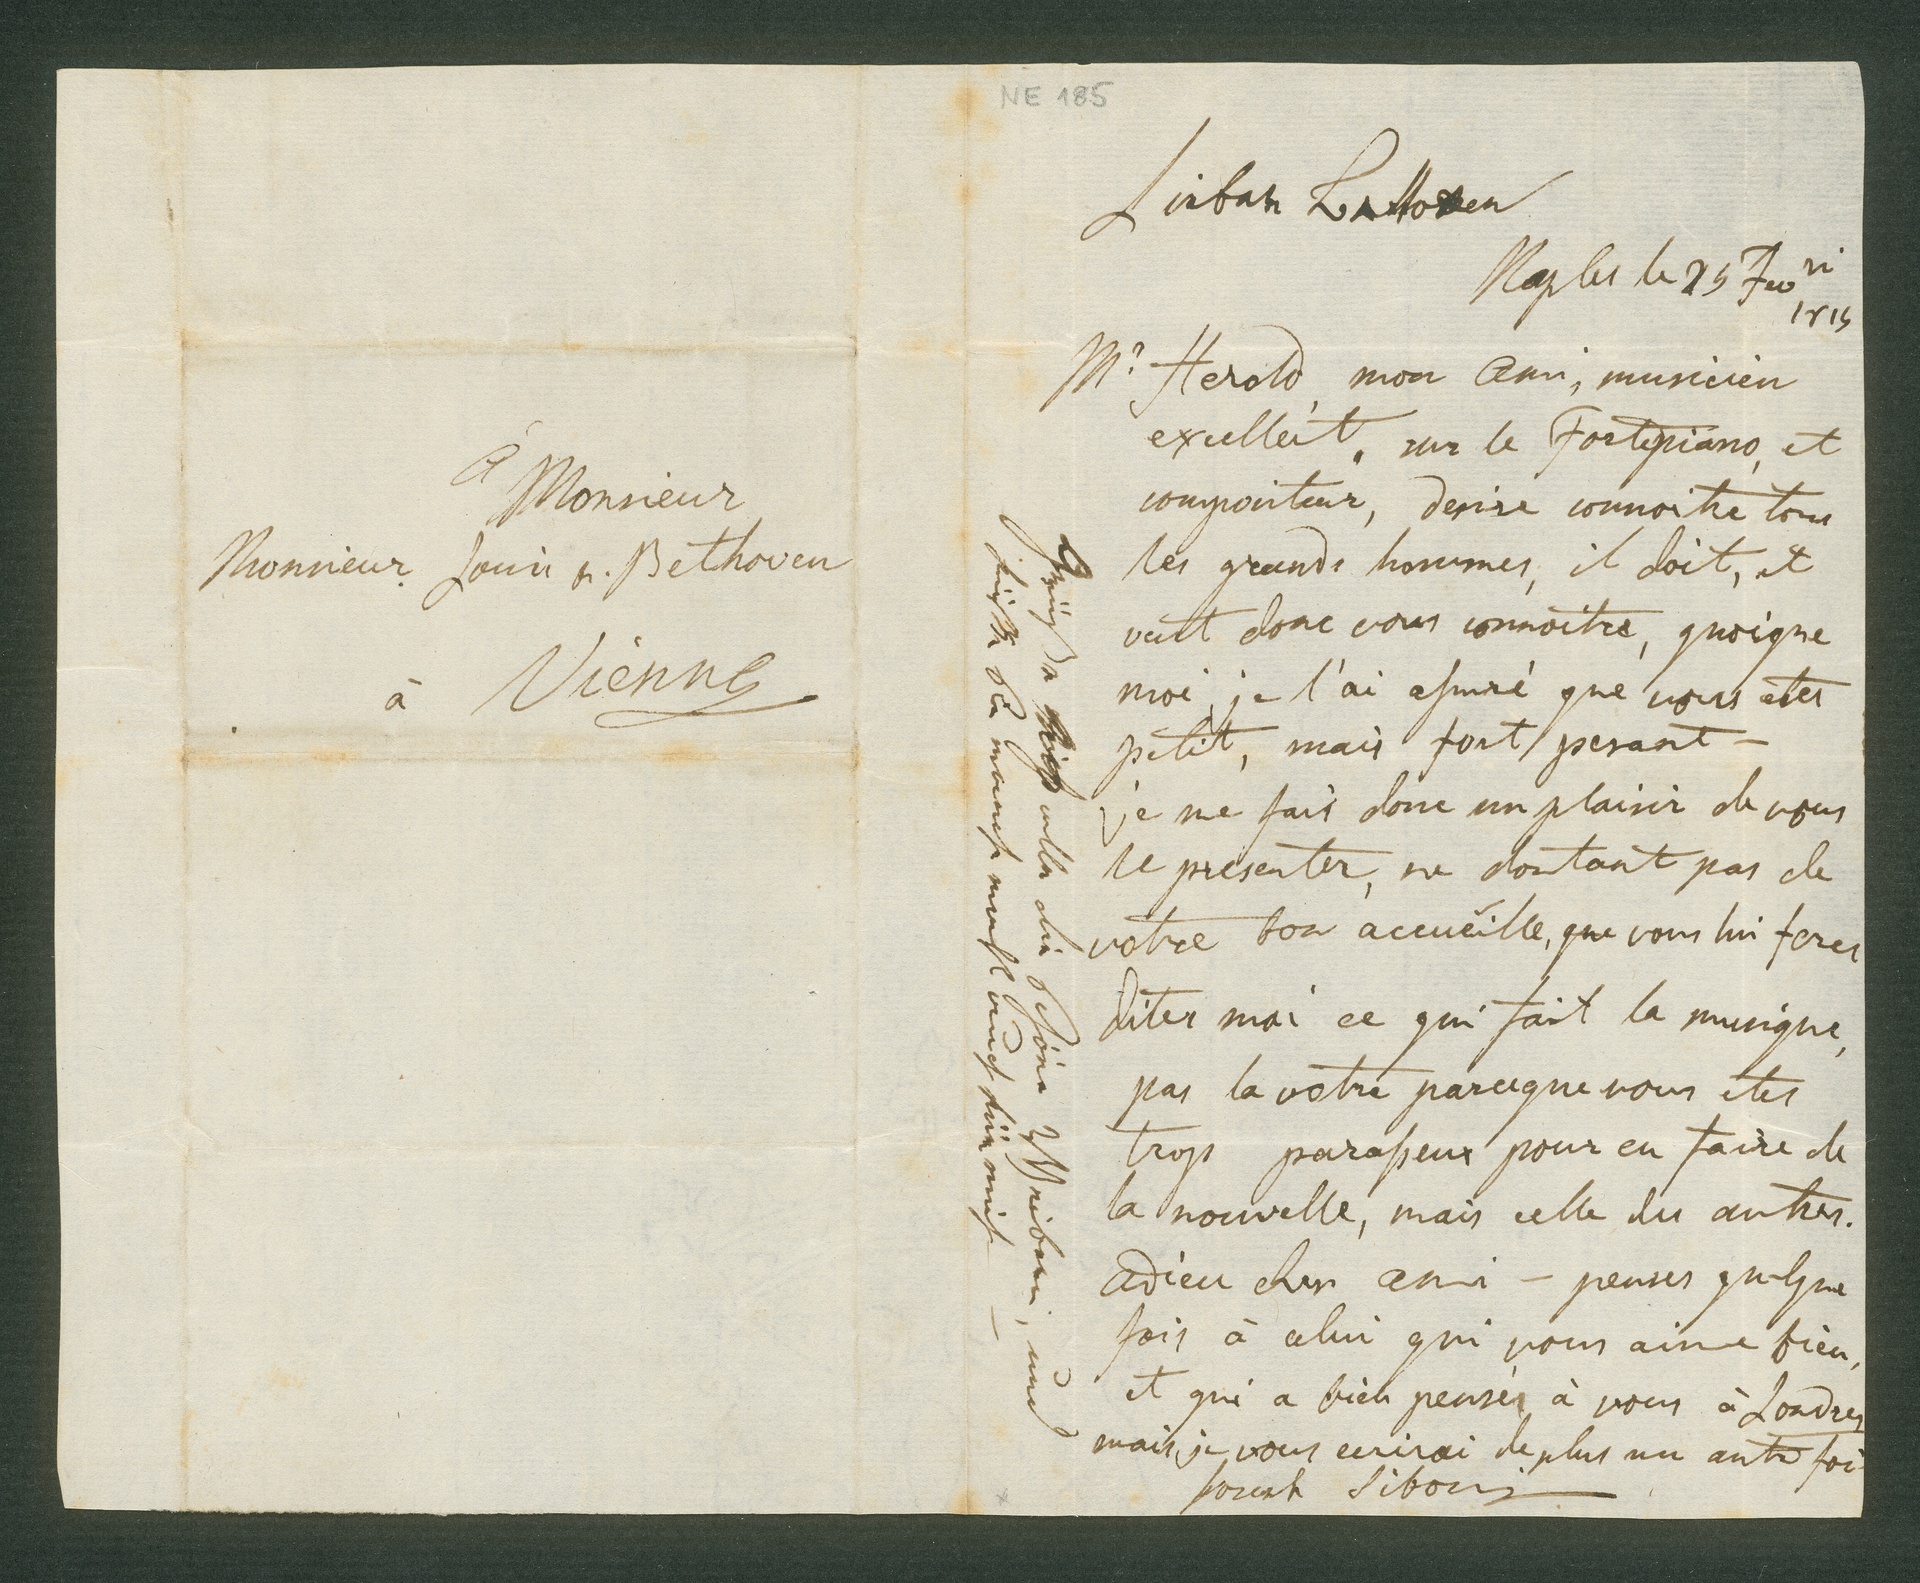 NE 185
Naples le 25 Fevri
1815
Mr. Herold, mon ami, musicien
excellent, sur le Fortepiano, et
compositeur, desire connoitre tous
les grands hommes, il doit, et
veut donc vous connoitre, quoique
moi, je l'ai assuré que vous etes
petit, mais fort pesant –
je me fais donc un plaisir de vous
le presenter, ne doutant pas de
votre bon accueille, que vous lui feres
dites moi ce qui fait la musique,
pas la votre parceque vous etes
trop parasseux pour en faire de
la nouvelle, mais celle des autres.
Adieu cher ami – penses quelque
fois à celui qui vous aime bien,
et qui a bien pensér à vous à Londres
mais je vous ecrirai de plus un autre foi
Siboni
alle die schöne Weiberin, und
à Monsieur
Monsieur Louis v. Bethoven
à Vienne